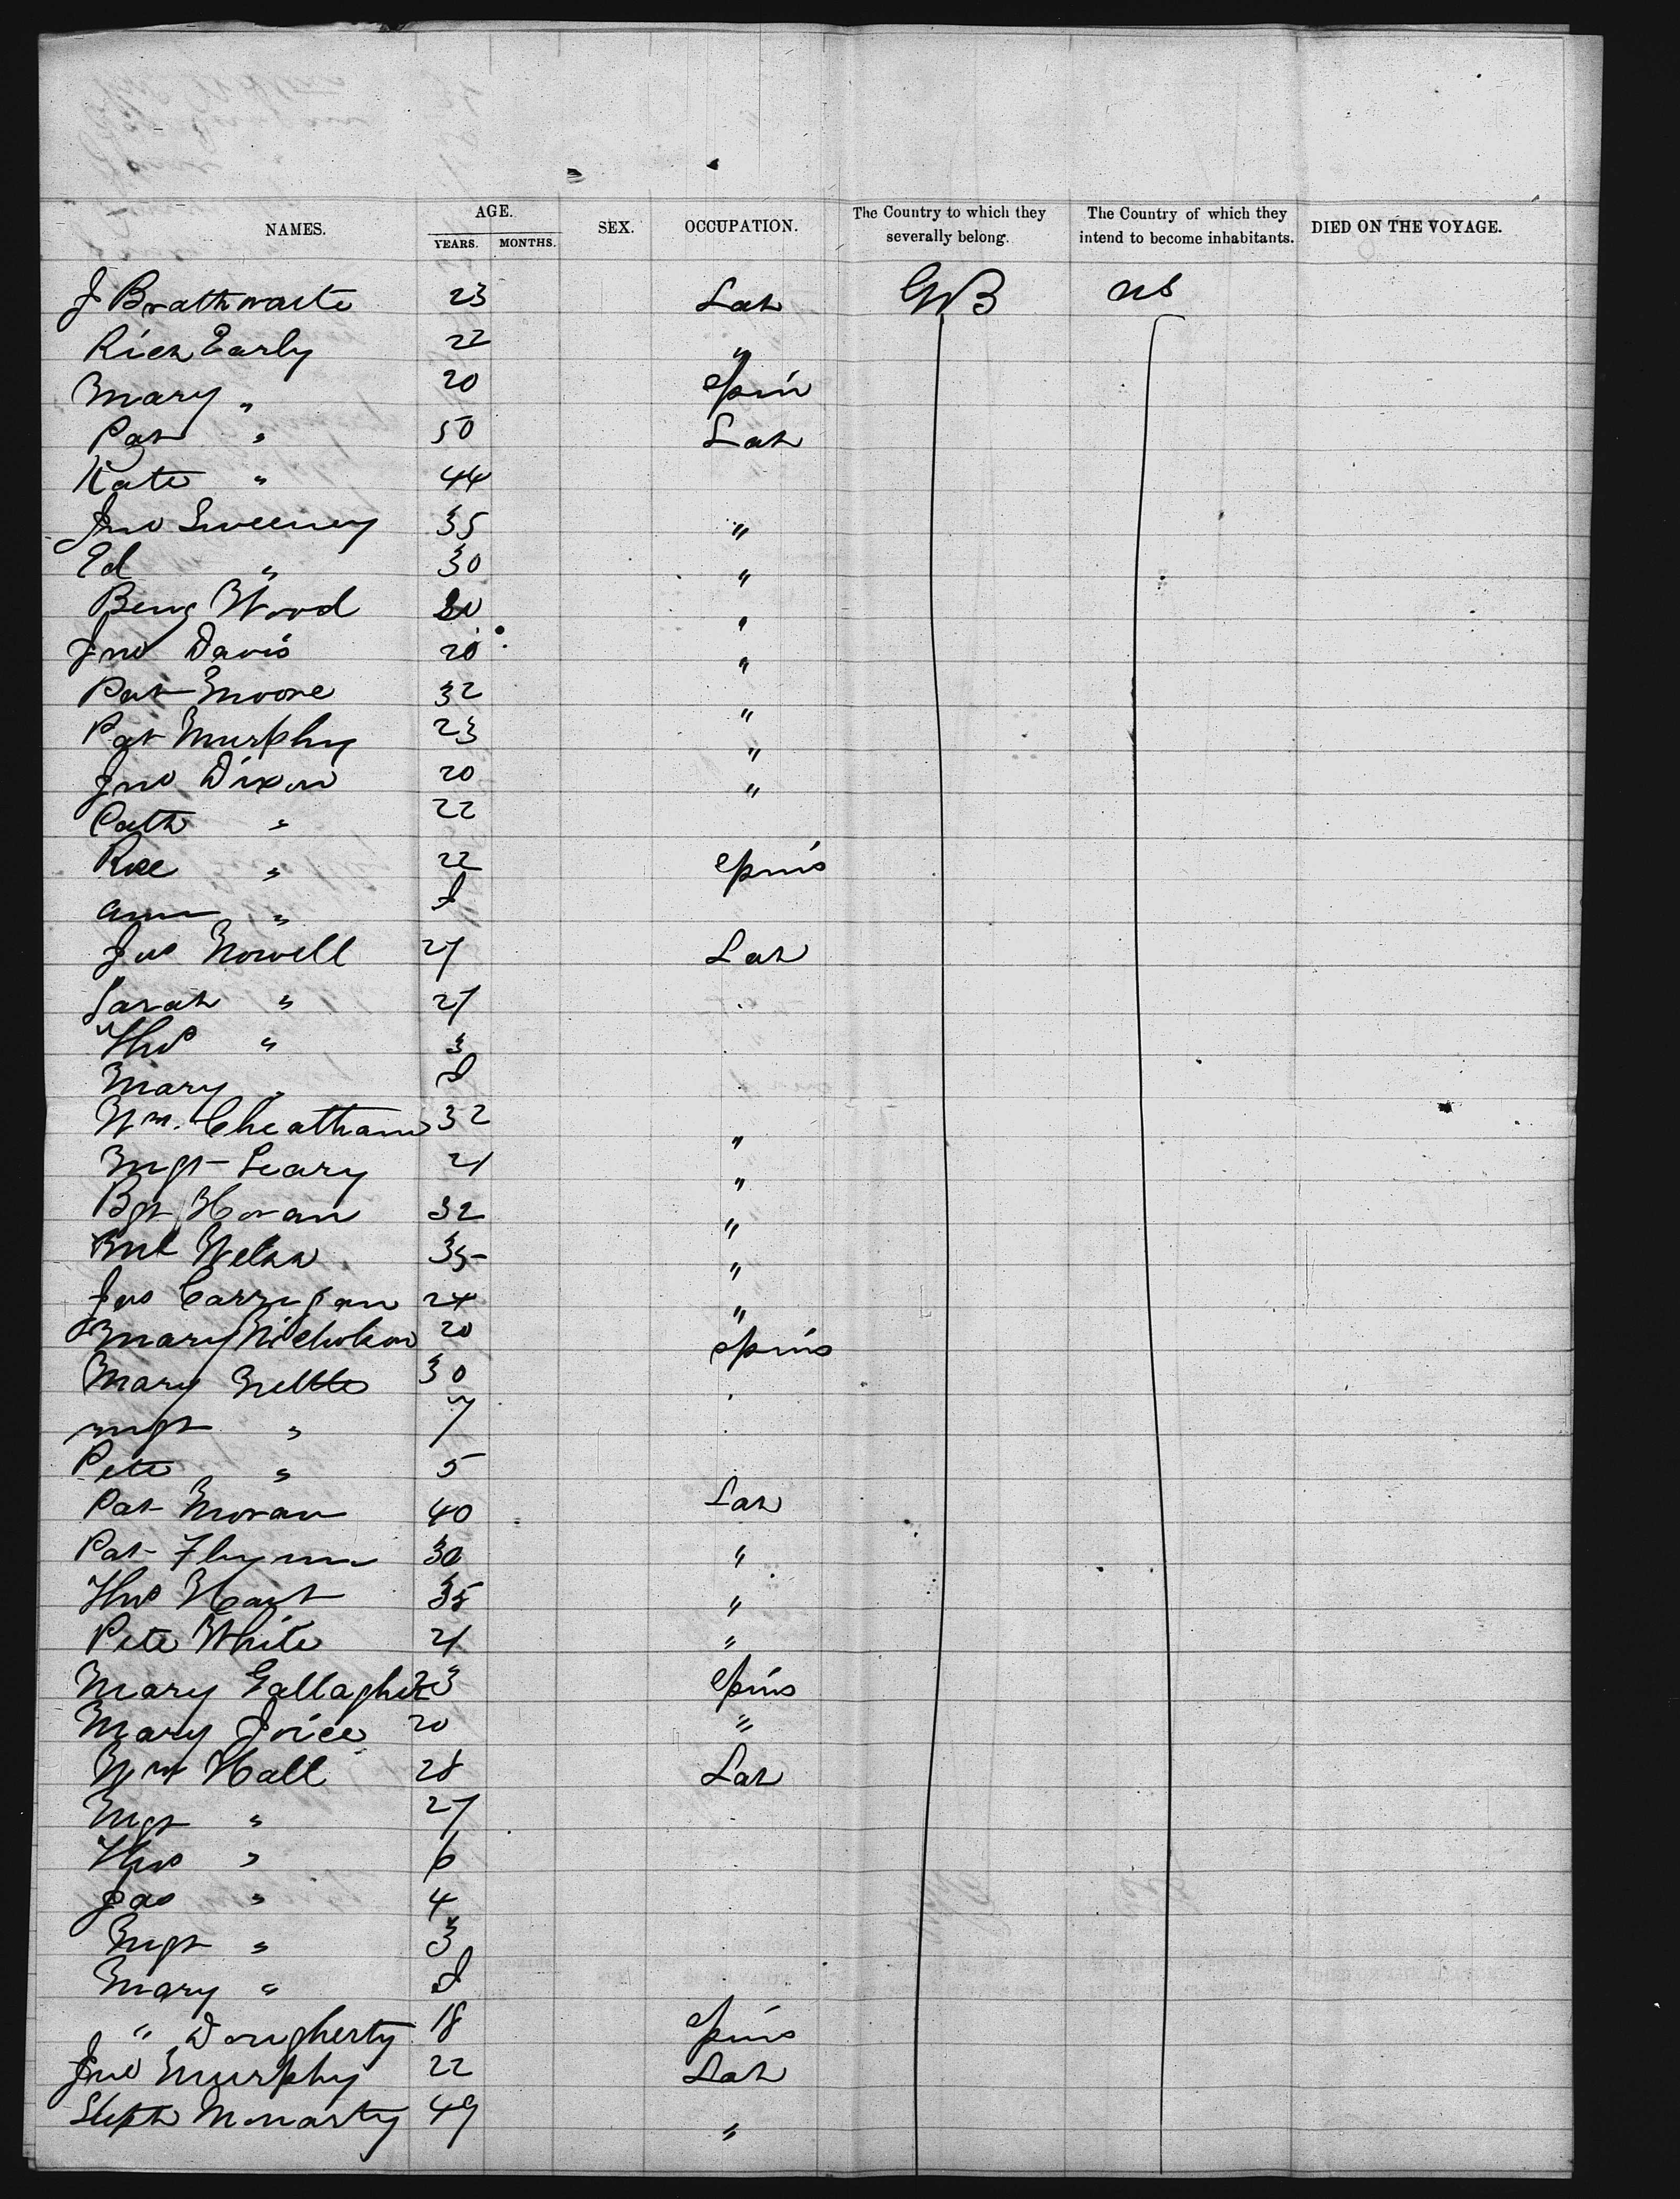 NAMES. AGE. YEARS. MONTHS. SEX. OCCUPATION. The Country to which they severally belong. The Country of which they intend to become inhabitants. DIED ON THE VOYAGE.
J Brathwaite 23 Lab GB US
Rich Early 22 "
Mary " 20 Spin
Pat " 50 Lab
Kate " 44
Jno Sweeney 35 "
Ed " 30 "
Benj Wood 20 "
Jno Davis 20 "
Pat Moore 32 "
Pat Murphy 23 "
Jno Dixon 20 "
Cath " 22
Rose " 22 Spins
Ann " I
Jas Nowell 27 Lab
Sarah " 27
Thos " 3
Mary " I
Wm. Cheatham 32 "
Mgt Leary 21 "
Bgt Horan 32 "
Welsh 35 "
Jas Carrigan 24 "
Mary Nicholson 20 Spins
Mary 30
Mgt " 7
Pete " 5
Pat Moran 40 Lab
Pat Flynn 30 "
Thos Hart 35 "
Pete White 21 "
Mary Gallagher 23 Spins
Mary Joice 20 "
Wm Hall 28 Lab
Mgt " 27
Thos " 6
Jas " 4
Mgt " 3
Mary " I
" Dougherty 18 Spins
Jno Murphy 22 Lab
Steph Moriarty 49 "